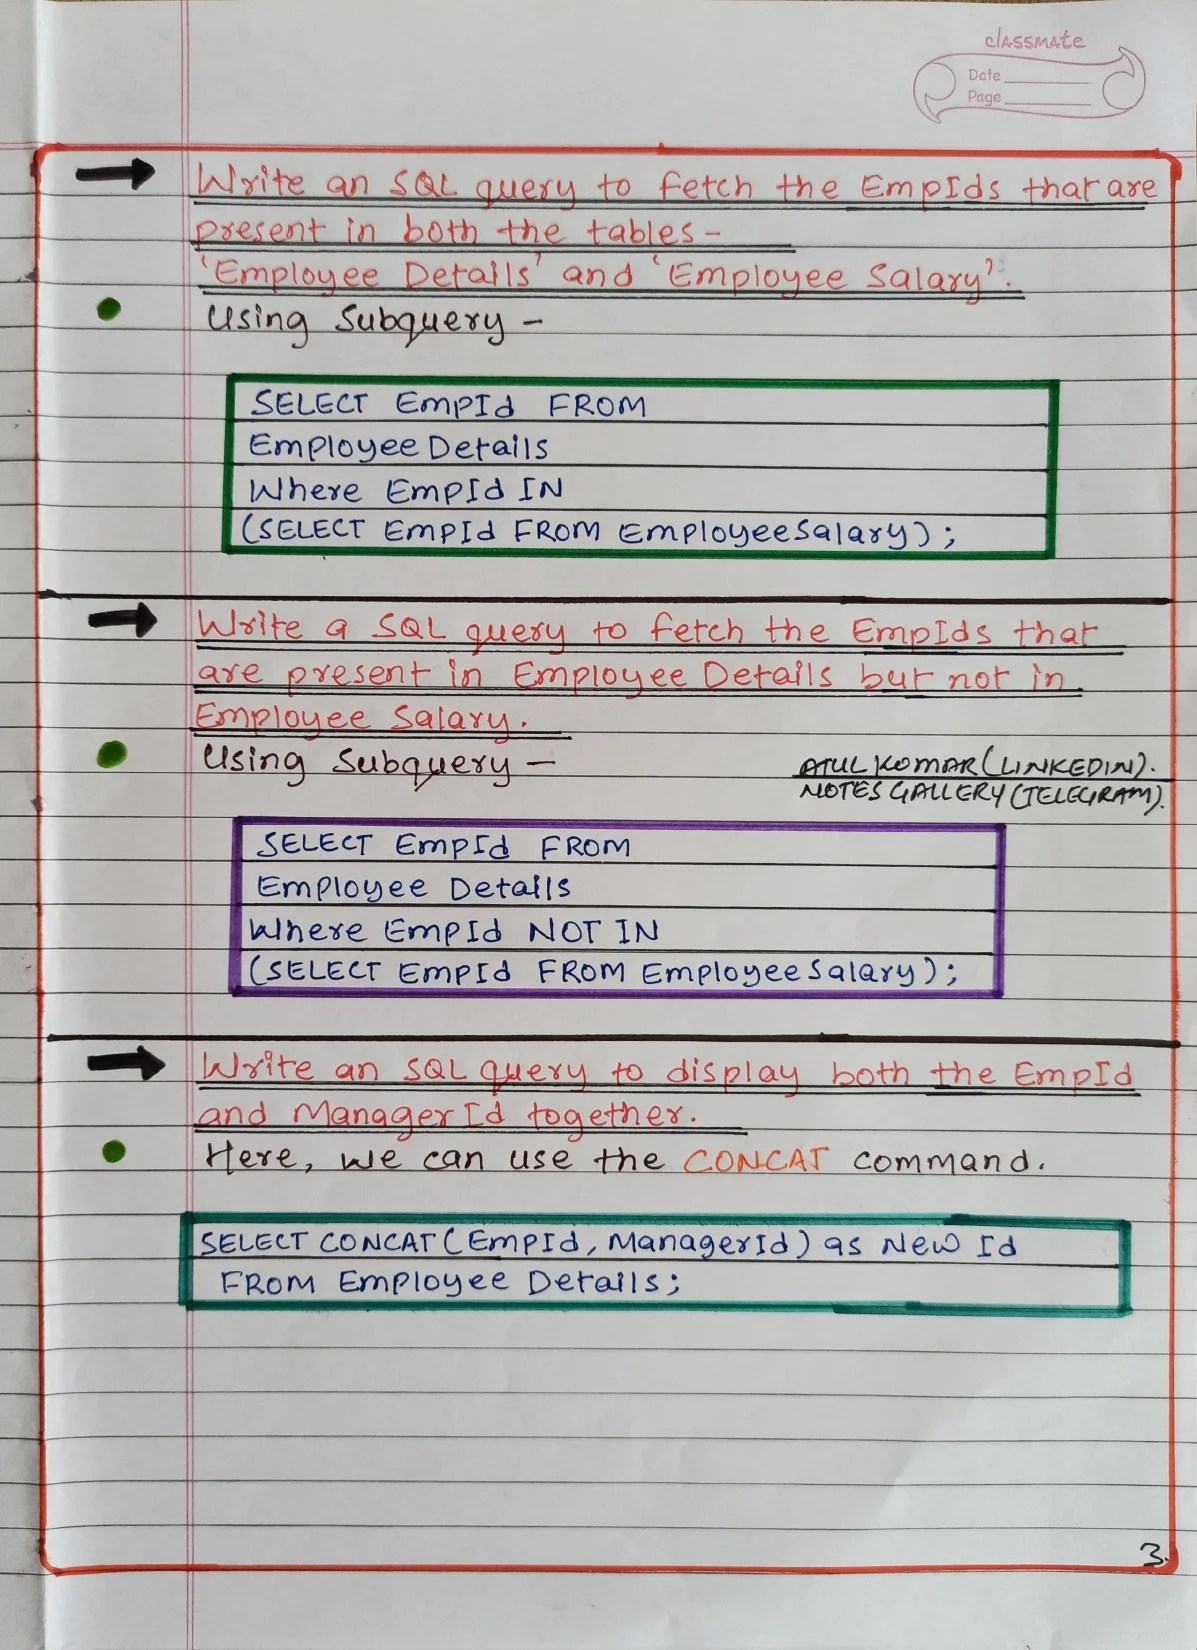 classmate
Date
Page
Write an SQL query to fetch the EmpIds that are
present in both the tables -
'Employee Details' and 'Employee Salary'.
Using Subquery -
SELECT EmpId FROM
Employee Details
Where EmpId IN
(SELECT EmpId FROM EmployeeSalary);
Write a SQL query to fetch the EmpIds that
are present in Employee Details but not in
Employee Salary.
Using Subquery -
ATUL KUMAR (LINKEDIN).
NOTES GALLERY (TELEGRAM).
SELECT EmpId FROM
Employee Details
Where EmpId NOT IN
(SELECT EmpId FROM EmployeeSalary);
Write an SQL query to display both the EmpId
and ManagerId together.
Here, we can use the CONCAT command.
SELECT CONCAT(EmpId, ManagerId) as New Id
FROM Employee Details;
3.